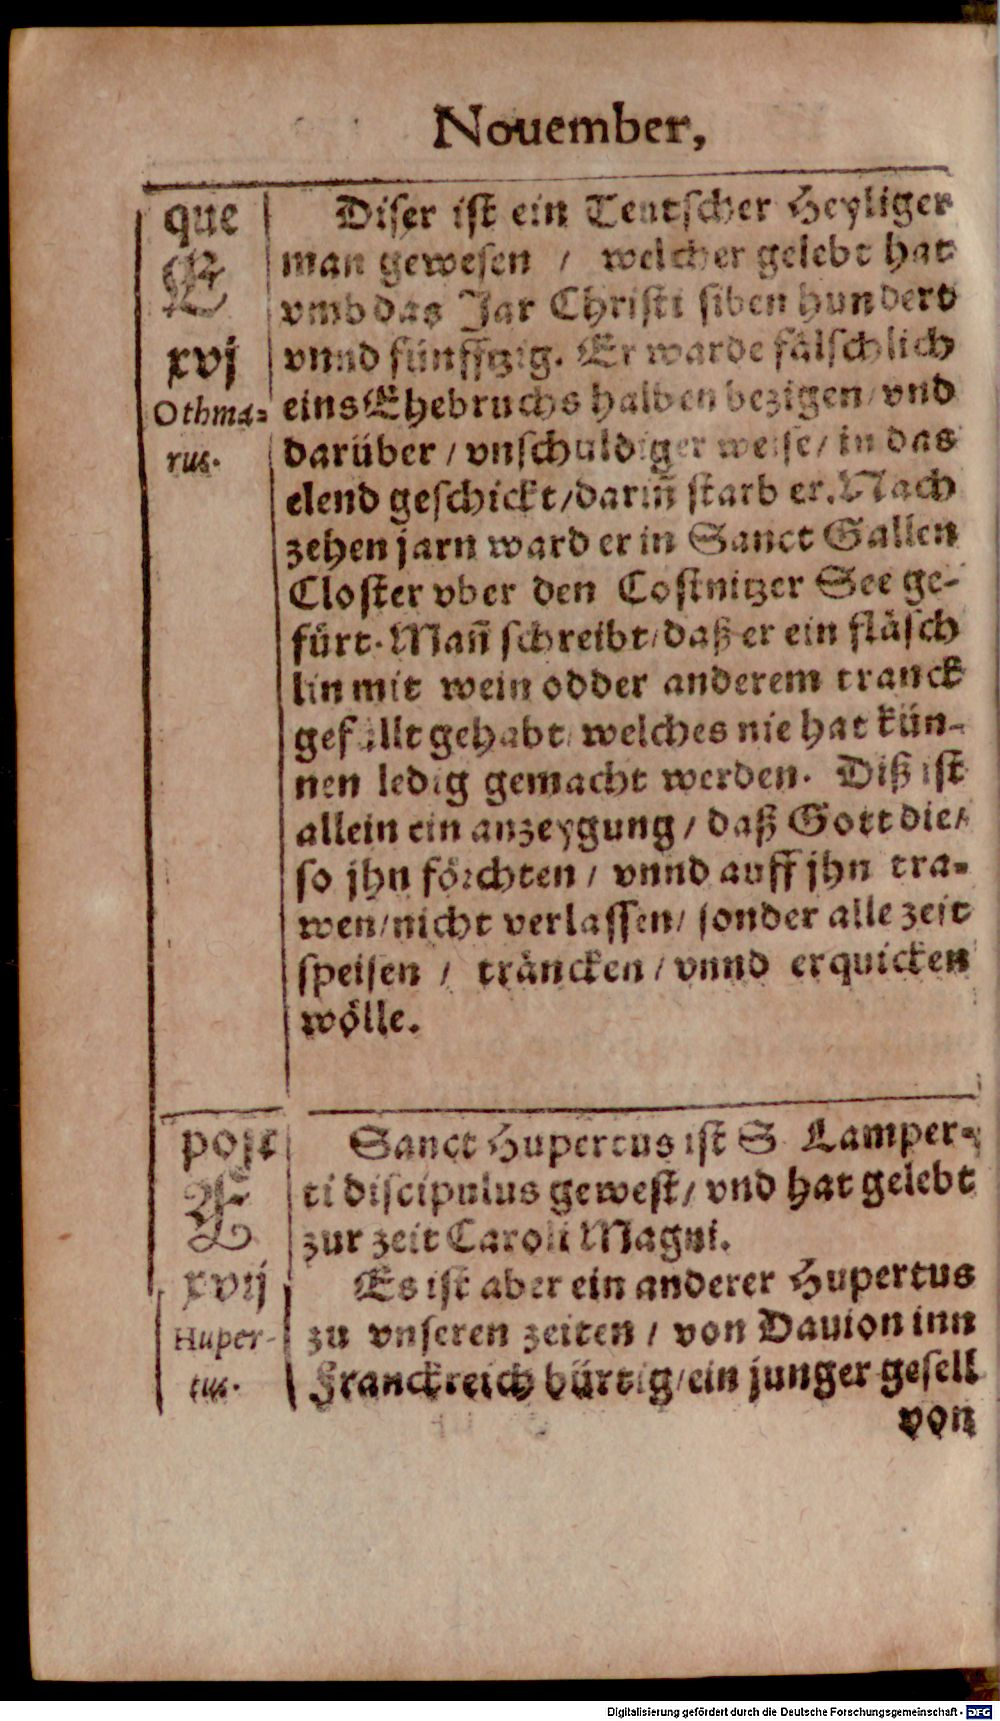 Nouember,
que
E
xvj
Othma-
rus.
Diser ist ein Teutscher Heyliger
man gewesen / welcher gelebt hat
vmb das Jar Christi siben hundert
vnnd fünfftzig. Er warde fälschlich
eins Ehebruchs halben bezigen / vnd
darüber / vnschuldiger weise / in das
elend geschickt / dariñ starb er. Nach
zehen jarn ward er in Sanct Gallen
Closter vber den Costnitzer See ge-
fürt. Mañ schreibt / daß er ein fläsch
lin mit wein odder anderem tranck
gefüllt gehabt / welches nie hat kün-
nen ledig gemacht werden. Diß ist
allein ein anzeygung / daß Gott die /
so jhn förchten / vnnd auff jhn tra-
wen / nicht verlassen / sonder alle zeit
speisen / träncken / vnnd erquicken
wölle.
post
F
xvij
Huper-
tus.
Sanct Hupertus ist S. Lamper-
ti discipulus gewest / vnd hat gelebt
zur zeit Caroli Magni.
Es ist aber ein anderer Hupertus
zu vnseren zeiten / von Dauion inn
Franckreich bürtig / ein junger gesell
von
Digitalisierung gefördert durch die Deutsche Forschungsgemeinschaft - DFG